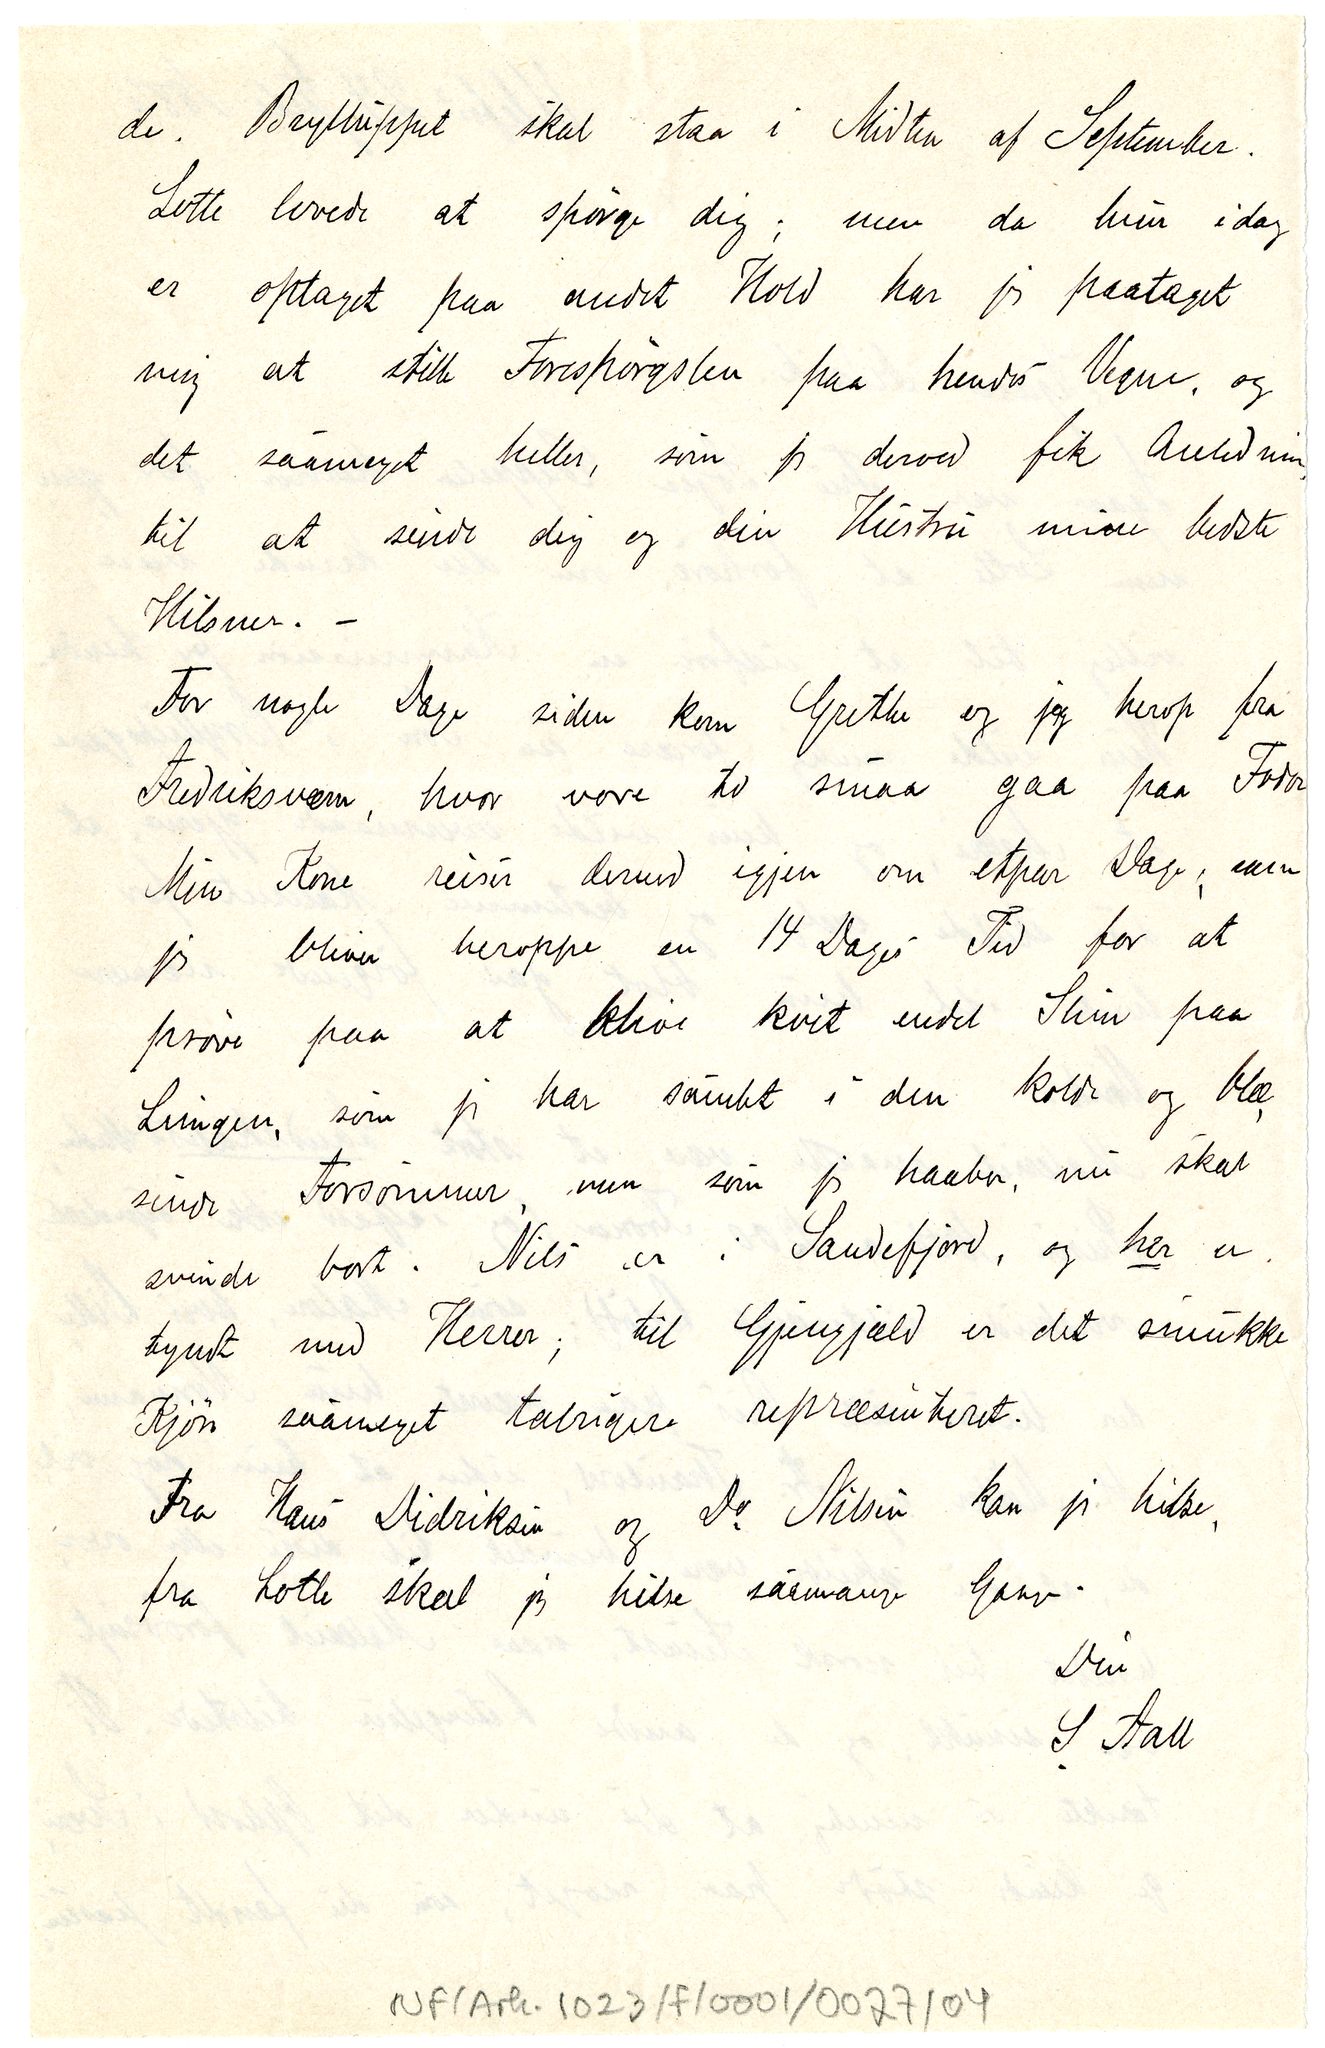 de. Brylluppet skal staa i Midten af September.
Lotte lovede at spørge dig; men da hun idag
er optaget paa andet Hold har jg paataget
mig at stille Forespørgslen paa hendes Vegne, og
det saameget heller, som jg derved fik Anledning
til at sende dig og din Hustru mine bedste
Hilsner. –
For nogle Dage siden kom Grethe og jeg herop fra
Fredriksværn, hvor vore to smaa gaa paa Foder
Min Kone reiser derned igjen om etpar Dage; men
jg bliver heroppe en 14 Dages Tid for at
prøve paa at blive kvit endel Slim paa
Lungen, som jg har samlet i den kolde og blæ,
sende Forsommer, men som jg haaber, nu skal
svinde bort. Nils er i Sandefjord, og her er
tyndt med Herrer; til Gjengjæld er det smukke
Kjøn saameget talrigere repræsenteret.
Fra Hans Didriksen og Dr. Nilsen kan jg hilse,
fra Lotte skal jg hilse saamange Gange.
Din
S. Aall
NF/Ark. 1023/F/0001/0027/04